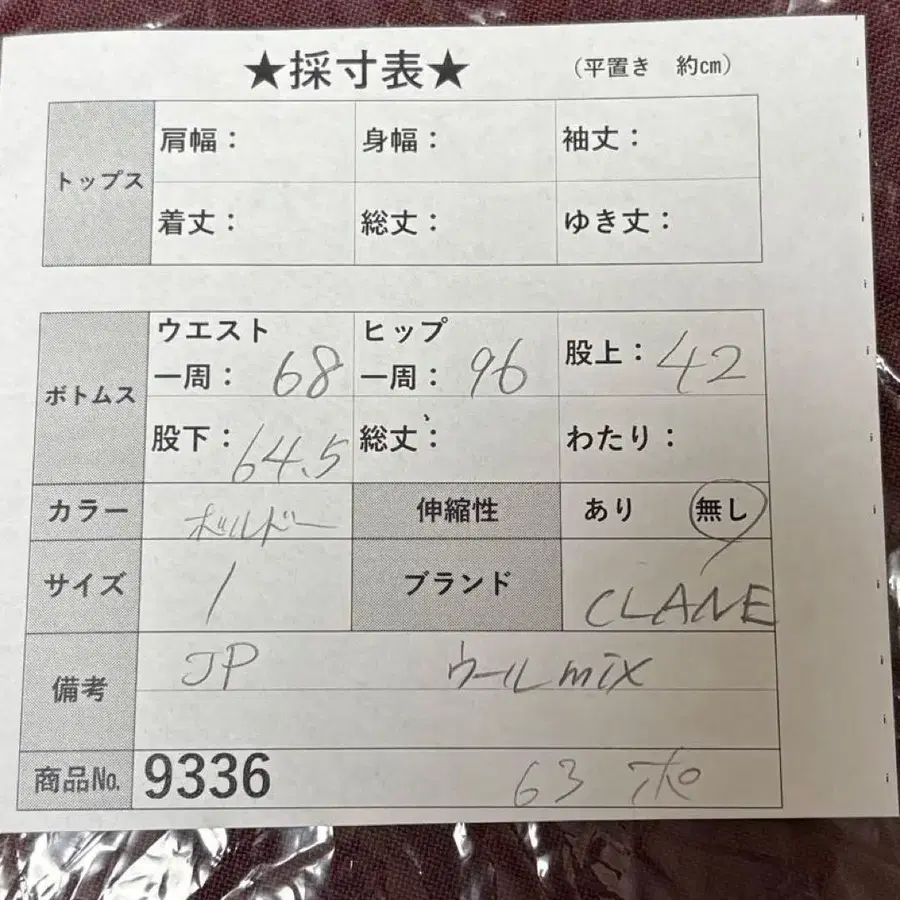 ★採寸表★ (平置き 約cm)
トップス
肩幅： 身幅： 袖丈：
着丈： 総丈： ゆき丈：
ボトムス
ウエスト一周： 68 ヒップ一周： 96 股上： 42
股下： 64.5 総丈： わたり：
カラー ボルドー 伸縮性 あり 無し
サイズ 1 ブランド CLANE
備考 JP ウールmix
商品No. 9336 63 ポ